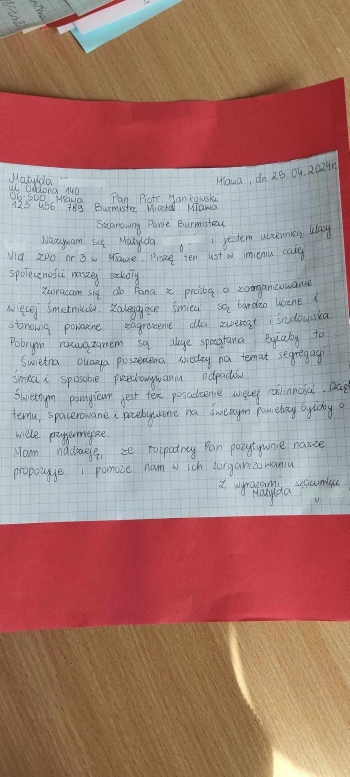 Matylda
Mława, dn. 25.04.2024r.
ul. Ordona 140
06-500 Mława
Pan Piotr Jankowski
123 456 789
Burmistrz Miasta Mława
Szanowny Panie Burmistrzu
Nazywam się Matylda i jestem uczennicą klasy
VIa ZPO nr 3 w Mławie. Piszę ten list w imieniu całej
społeczności naszej szkoły
Zwracam się do Pana z prośbą o zorganizowanie
więcej śmietników. Zalegające śmieci są bardzo liczne i
stanowią poważne zagrożenie dla zwierząt i środowiska.
Dobrym rozwiązaniem są akcje sprzątania. Byłaby to
świetna okazja poszerzenia wiedzy na temat segregacji
śmieci i sposobie przechowywania odpadów.
Świetnym pomysłem jest też posadzenie więcej roślinności. Dzięki
temu, spacerowanie i przebywanie na świeżym powietrzu byłoby o
wiele przyjemniejsze.
Mam nadzieję, że rozpatrzy Pan pozytywnie nasze
propozycje i pomoże nam w ich zorganizowaniu.
Z wyrazami szacunku
Matylda